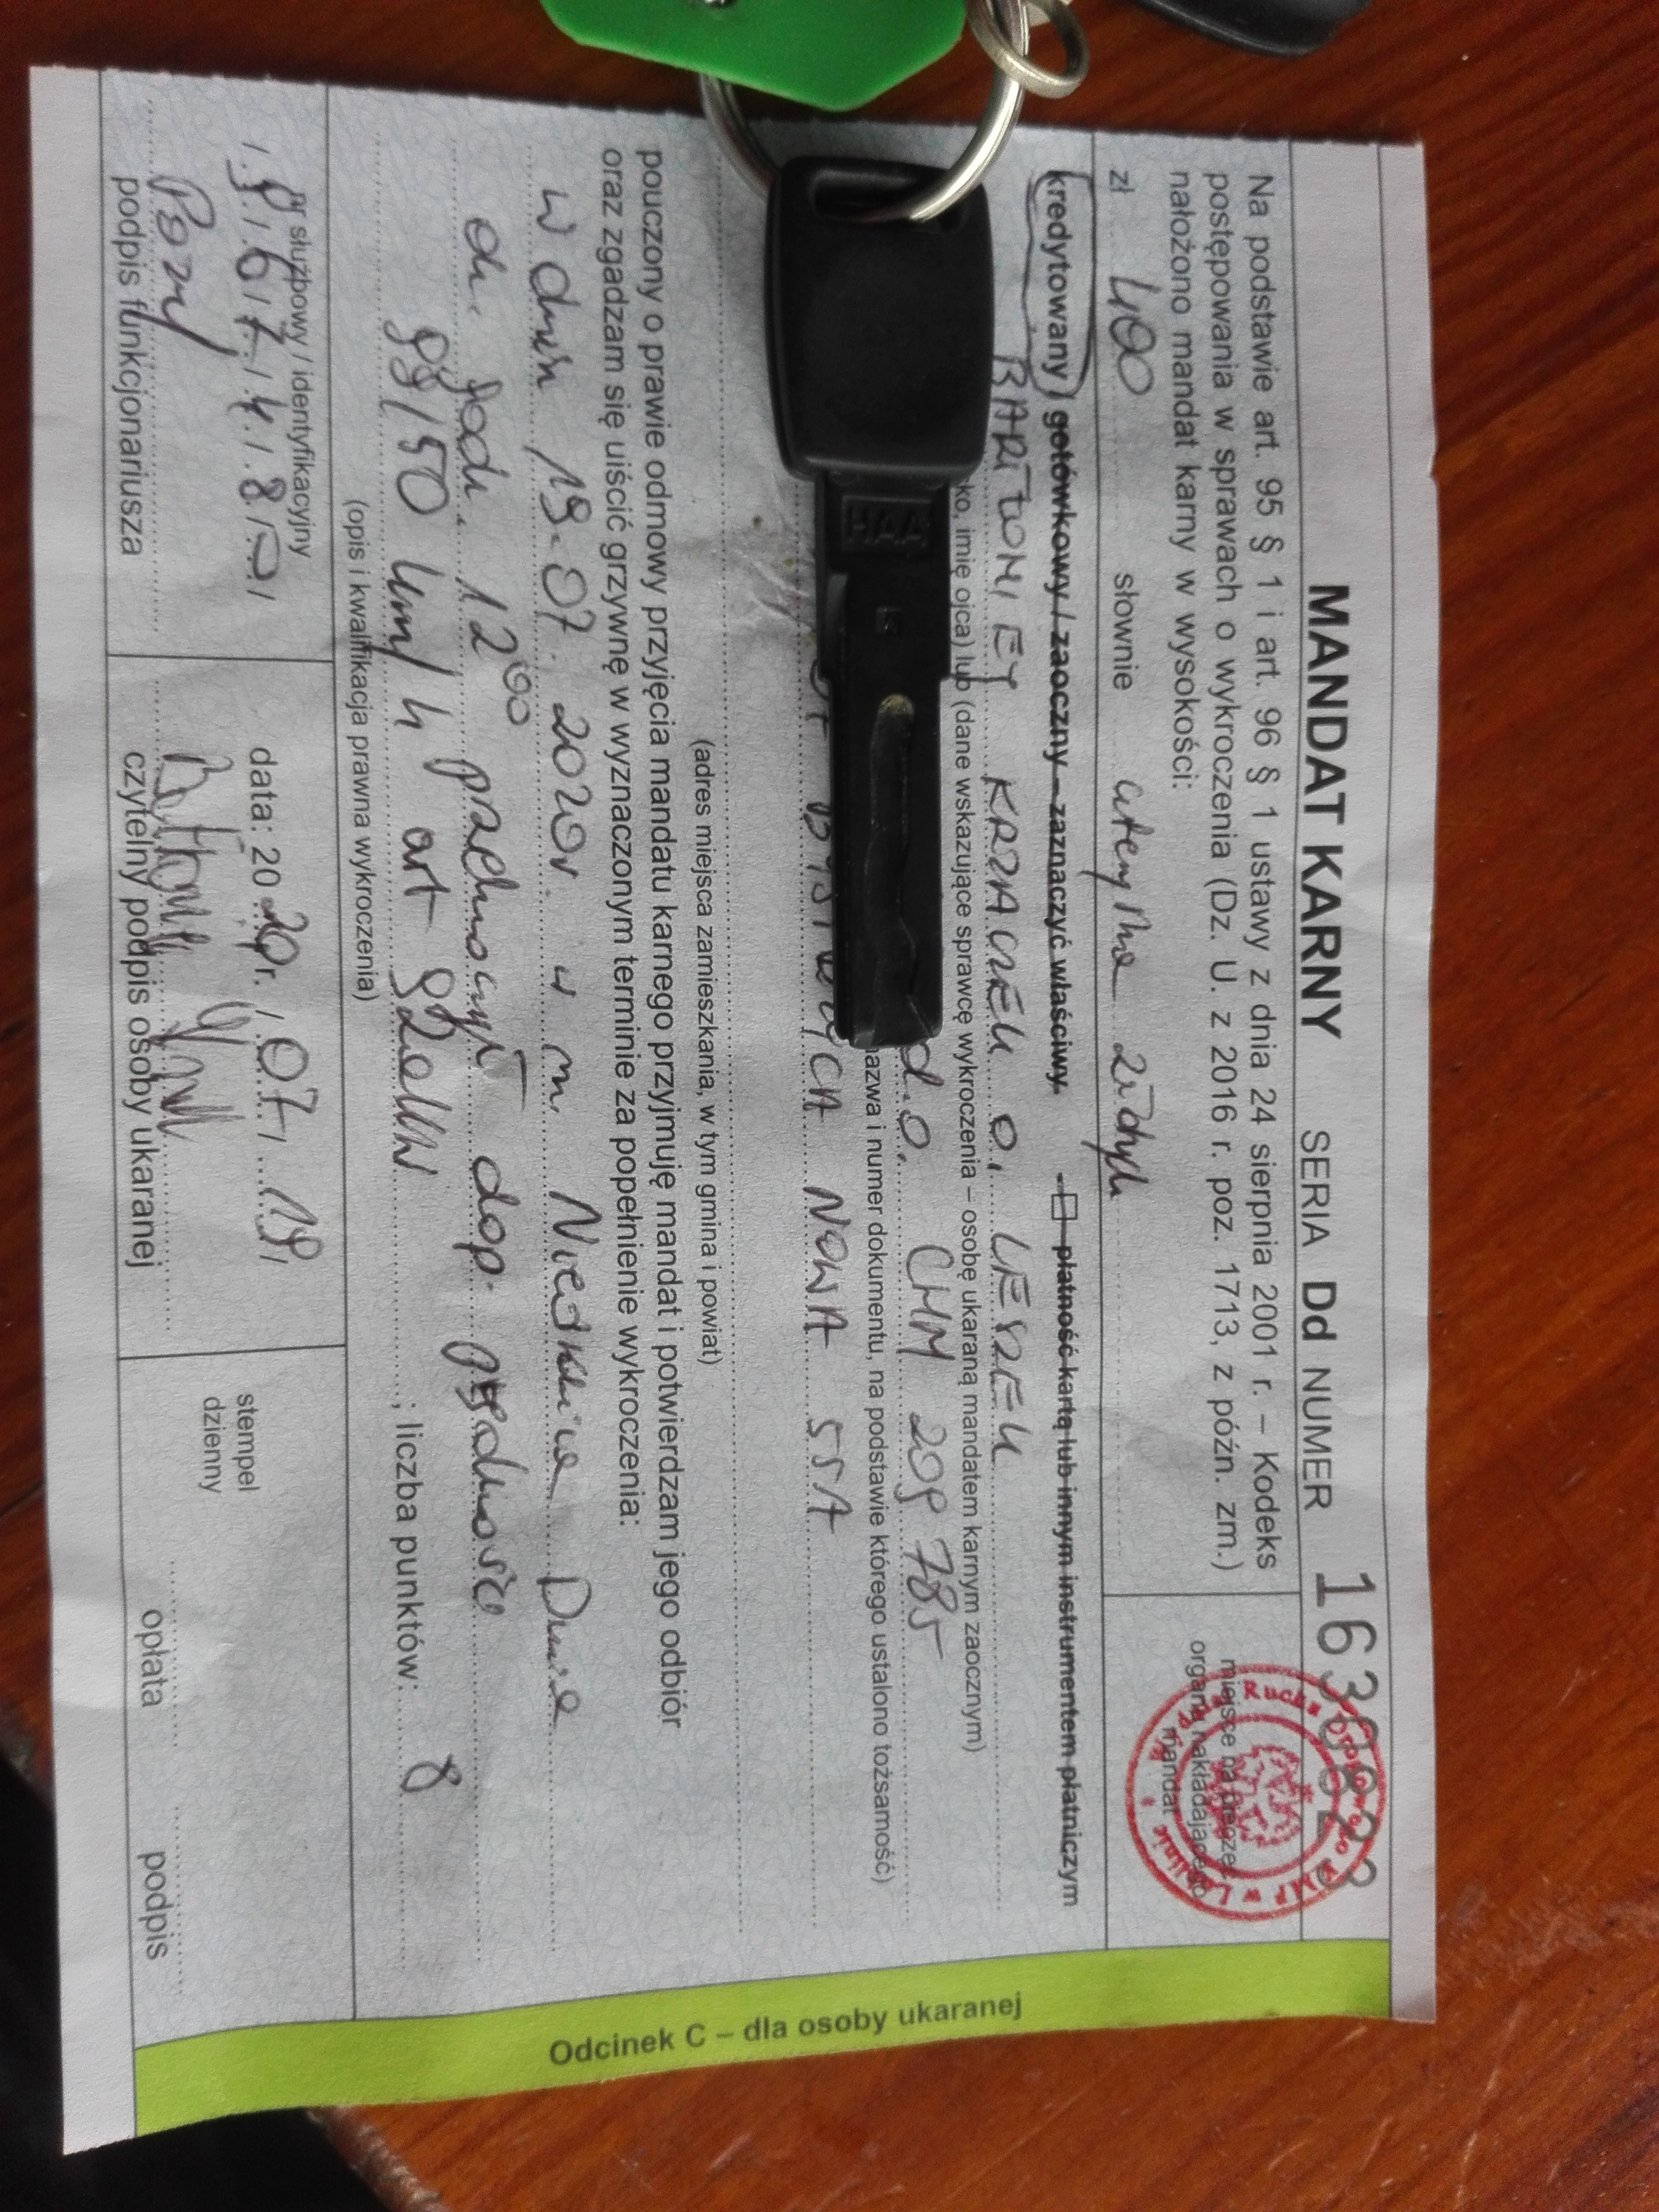 MANDAT KARNY SERIA Dd NUMER
Na podstawie art. 95 § 1 i art. 96 § 1 ustawy z dnia 24 sierpnia 2001 r. – Kodeks
postępowania w sprawach o wykroczenia (Dz. U. z 2016 r. poz. 1713, z późn. zm.)
nałożono mandat karny w wysokości:
miejsce na pieczęć
organu nakładającego
mandat
zł 400 słownie czterysta złotych
kredytowany / gotówkowy / zaoczny – zaznaczyć właściwy. płatność kartą lub innym instrumentem płatniczym
KRZACZEK o. LESZEK
ko, imię ojca) lub (dane wskazujące sprawcę wykroczenia – osobę ukaraną mandatem karnym zaocznym)
d.o. CHM 209785
nazwa i numer dokumentu, na podstawie którego ustalono tożsamość)
BYSTRZYCA NOWA 55A
(adres miejsca zamieszkania, w tym gmina i powiat)
pouczony o prawie odmowy przyjęcia mandatu karnego przyjmuję mandat i potwierdzam jego odbiór
oraz zgadzam się uiścić grzywnę w wyznaczonym terminie za popełnienie wykroczenia:
w dniu 19.07.2020r. w m. Niedrzwica Duża
ok. godz. 12⁰⁰ przekroczył dop. prędkość
99/50 km/h art 92a kw ; liczba punktów: 8
(opis i kwalifikacja prawna wykroczenia)
nr służbowy / identyfikacyjny
podpis funkcjonariusza
data: 2020 r. / 07 / 19
czytelny podpis osoby ukaranej
stempel
dzienny
opłata
podpis
Odcinek C – dla osoby ukaranej
HAA